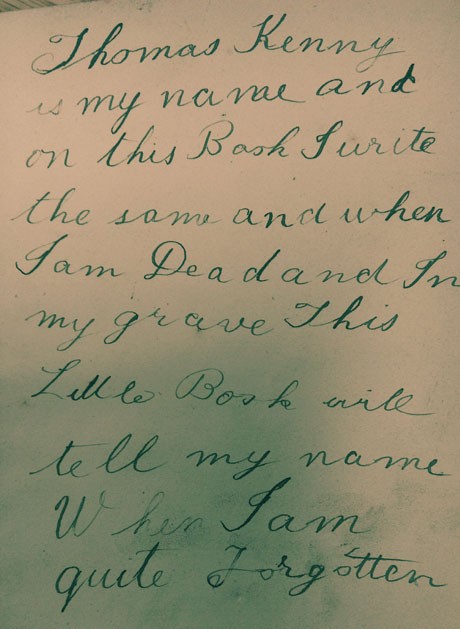 Thomas Kenny
is my name and
on this Book I write
the same and when
I am Dead and In
my grave This
Little Book will
tell my name
When I am
quite Forgotten